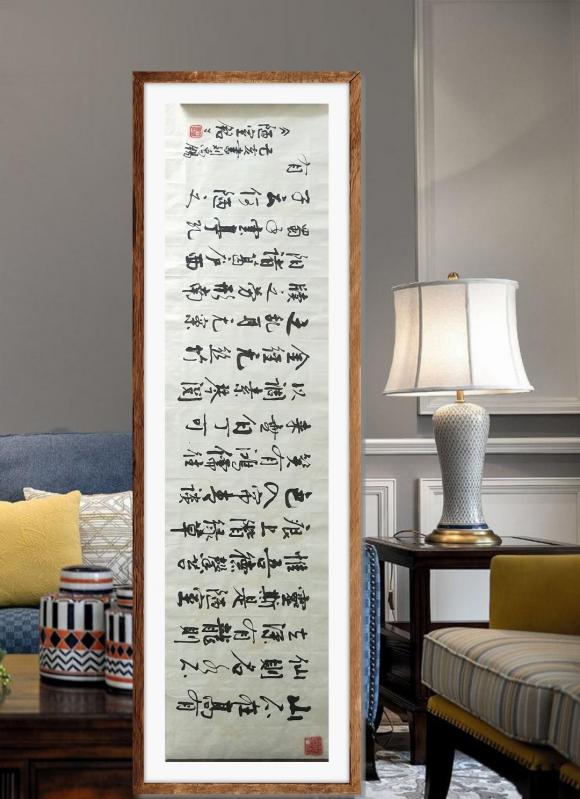 山不在高有
仙則名水不
在深有龍則
靈斯是陋室
惟吾德馨苔
痕上階綠草
色入帘青談
笑有鴻儒往
來無白丁可
以調素琴閱
金經无絲竹
之亂耳无案
牘之勞形南
陽諸葛庐西
蜀子雲亭孔
子云何陋之
有
己亥書劉禹錫
陋室銘